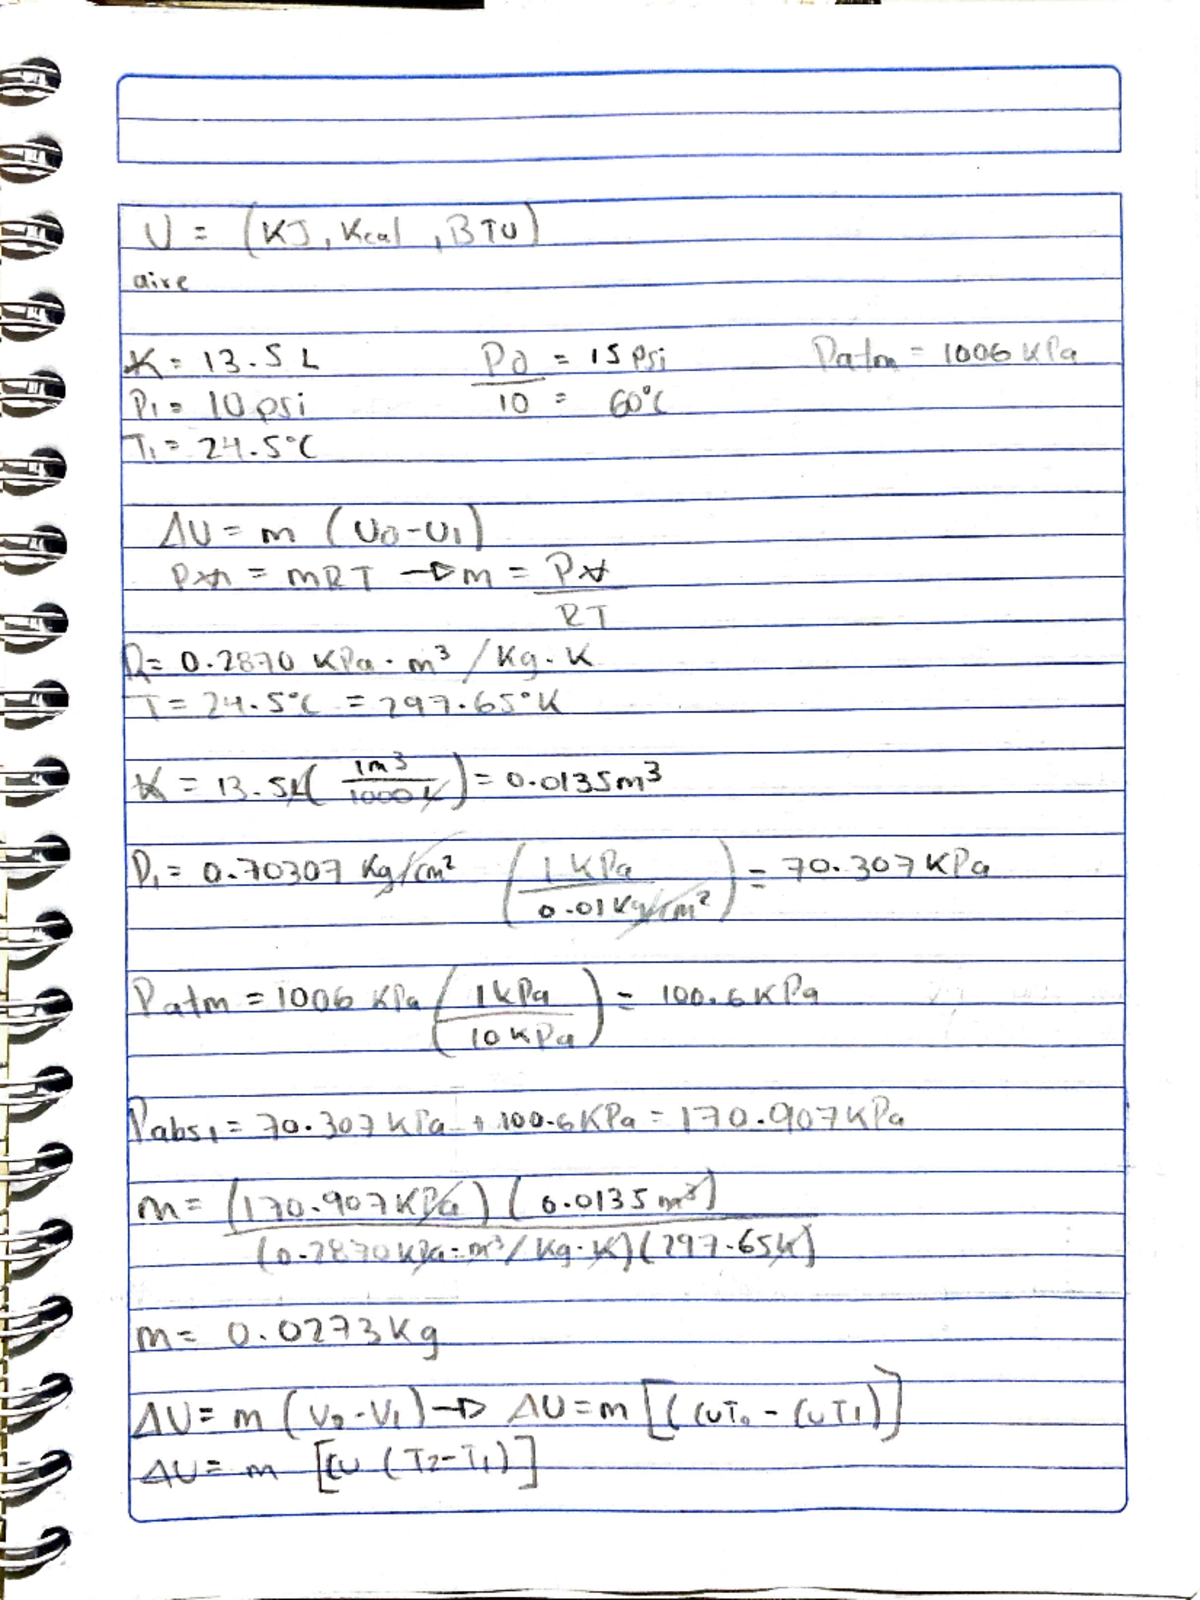 U = (KJ, Kcal, BTU)
aire
V = 13.5 L P∂ = 15 Psi Patm = 1006 KPa
P1 = 10 psi 10 = 60°C
T1 = 24.5°C
ΔU = m (U∂-U1)
PV = mRT → m = PV
RT
R= 0.2870 KPa · m³ / Kg · K
T = 24.5°C = 297.65°K
V = 13.5L ( 1m³ / 1000 L ) = 0.0135m³
P1 = 0.70307 Kg/cm² ( 1 KPa / 0.01 Kg/cm² ) = 70.307 KPa
Patm = 1006 KPa ( 1 KPa / 10 KPa ) = 100.6 KPa
Pabs1 = 70.307 KPa + 100.6 KPa = 170.907 KPa
m = (170.907 KPa) (0.0135 m³)
(0.2870 KPa·m³/Kg·K)(297.65K)
m = 0.0273 Kg
ΔU = m (U2-U1) → ΔU = m [(CuT2 - (uT1)]
ΔU = m [Cu (T2-T1)]